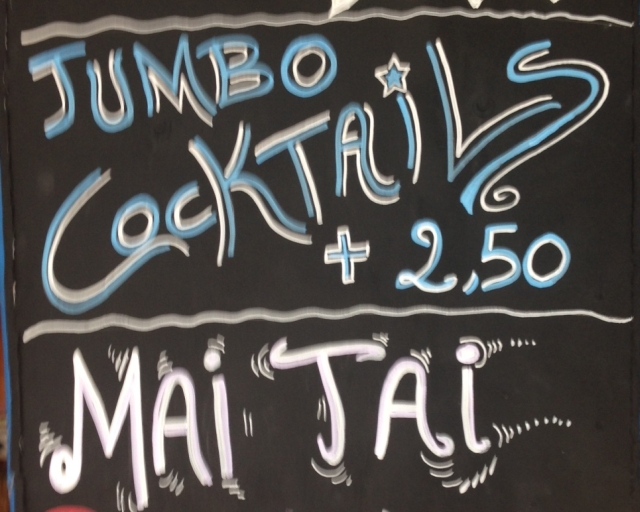 JUMBO
COCKTAiLS
+ 2,50
MAi TAi